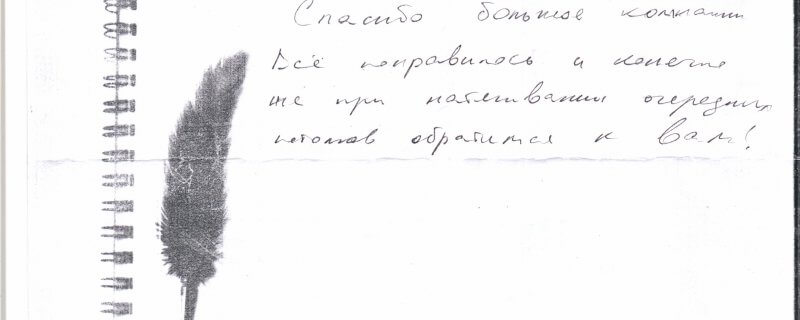 Спасибо большое компании
Всё понравилось и конечно
же при натягивании очередных
потолков обратимся к Вам!